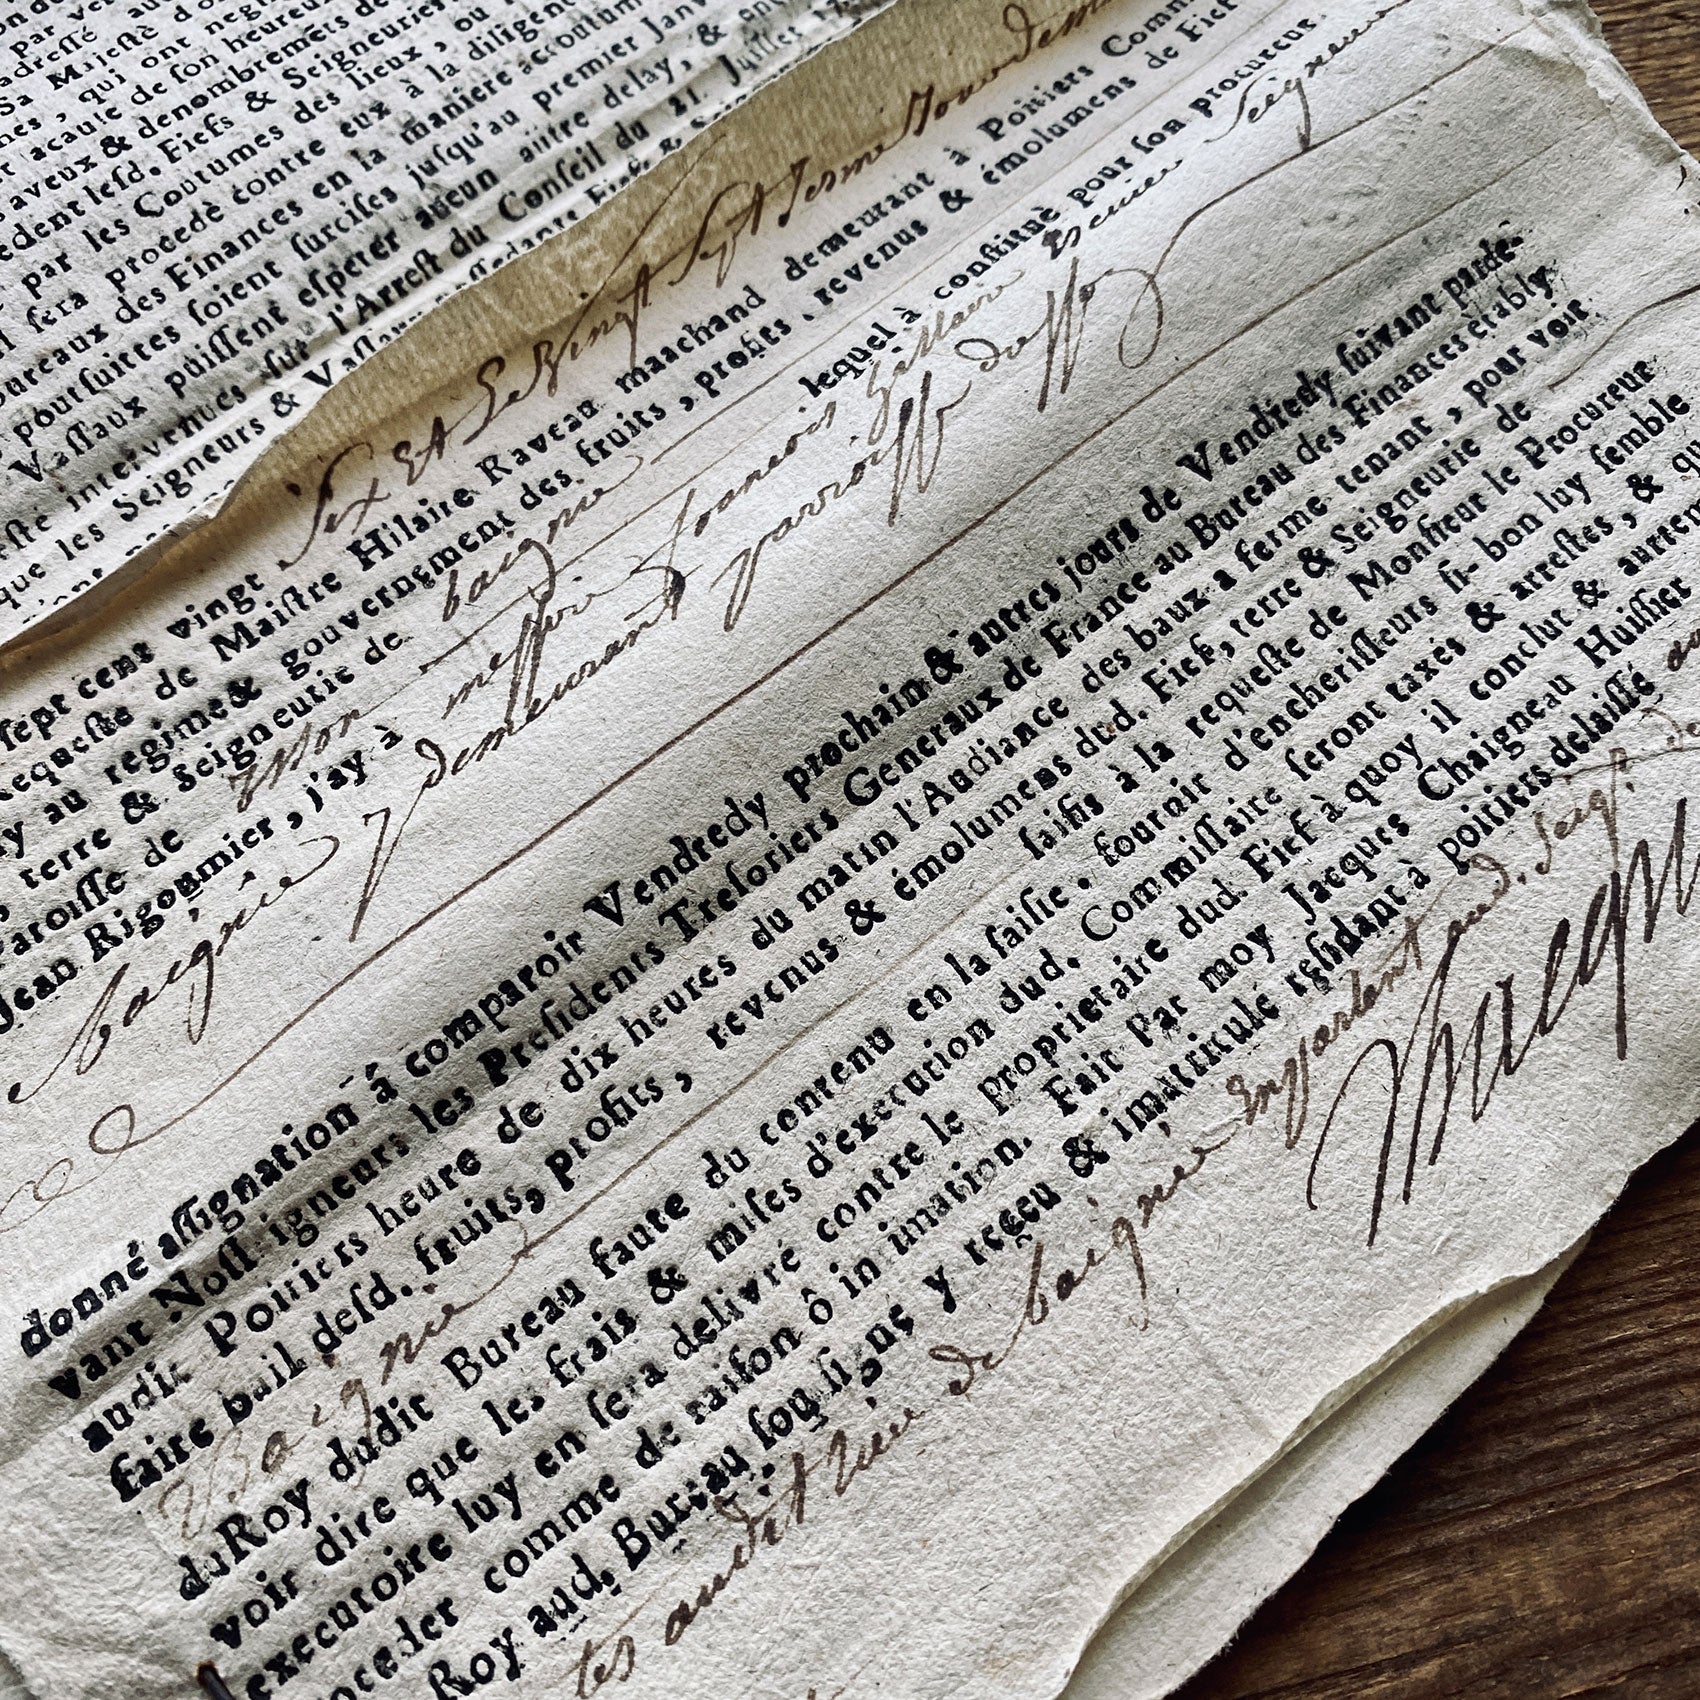 par ve
adreſſé au
Sa Majeſté d'o
nes, qui ont neglig
t acauſe de ſon heureu
s aveux & denombremēts de
cedent leſd. Fiefs & Seigneuries
par les Coutumes des lieux, ou
l ſera procedé contre eux à la diligen
ureaux des Finances en la maniere accoutum
pourſuittes ſoient ſurciſes juſqu'au premier Janv
Vaſſaux puiſſent eſperer aucun autre delay, & en
eſté intervenuës ſur l'Arreſt du Conſeil du 21. Juillet
que les Seigneurs &
ſept cens vingt Six Et Le Vingt Sept Iesme Jour de
equeſte de Maiſtre Hilaire Raveau maachand demeurant à Poitiers Comm
y au regime & gouvernement des fruits, profits, revenus & émolumens de Fief
terre & Seigneurie de baignie
Paroiſſe de lequel à conſtitué pour ſon procureur
Jean Rigommier, j'ay à meſſire francois hillaire Escuier Seigneur
baignie y demeurant parroiſſe
donné aſſignation à comparoir Vendredy prochain & autres jours de Vendredy ſuivant parde-
vant Noſſ igneurs les Preſidents Treſoriers Generaux de France au Bureau des Finances étably
audit Poitiers heure de dix heures du matin l'Audiance des baux a ferme tenant, pour voir
faire bail deſd. fruits, profits, revenus & émolumens dud. Fief, terre & Seigneurie de
Baignie ſaiſis à la requeſte de Monſieur le Procureur
du Roy dudit Bureau faute du contenu en la ſaiſie, fournir d'encheriſſeurs ſi-bon luy ſemble
voir dire que les frais & miſes d'execution dud. Commiſſaire ſeront taxés & arreſtes, & qu
executoire luy en ſera delivré contre le proprietaire dud. Fief à quoy il conclut & aurten
oceder comme de raiſon ô in imation. Fait Par moy Jacques Chaigneau Huiſſier
Roy aud, Bureau ſouſigns y reçeu & imatriculé reſidant à poitiers delaiſſé
tes audit lieu de baignie En parlent aud. Seig.r de